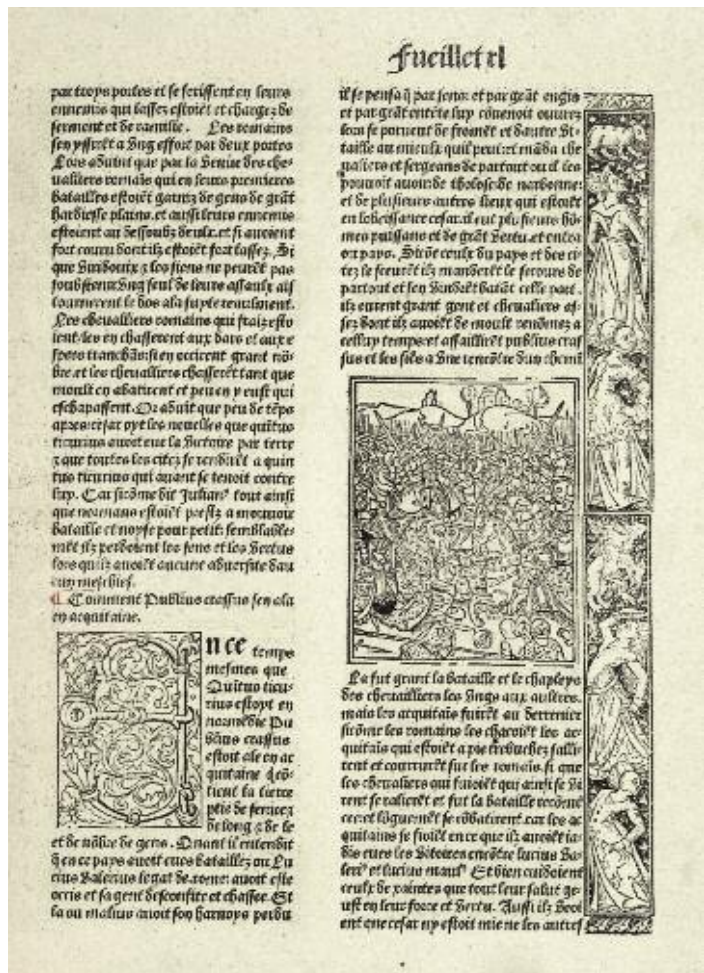 Fueillet xl
par troys portes et se ferissent en leurs
ennemis qui lassez estoiẽt et chargez de
ferment et de ramille. Les rommains
sen yssirẽt a Vng effort par deux portes
Lors aduint que par la Vertu des che-
ualiers romaĩs qui en leurs premieres
batailles estoiẽt garniz de gens de grãt
hardiesse plains. et aussi leurs ennemis
estoient au dessoubz deulx. et si auoient
fort couru dont ilz estoiẽt fort lassez. Si
que Virdouix ⁊ les siens ne peurẽt pas
soubstenir Vng seul de leurs assaulx ais
tournerent le dos a la fuyte
Les cheualliers romains qui fraiz esto
ient les en chasserent aux dars et aux e
spees tranchãs: si en occirent grant nõ-
bre. et les cheualliers chasserẽt tant que
moult en abatirent et peu en y eust qui
eschapassent. Or aduĩt que peu de tẽps
apres cesar oyt les nouuelles que quĩtus
ticurius auoit eue la Victoire par terre
⁊ que toutes les citez se rendirẽt a quin
tus ticurius qui auant se tenoit contre
luy. Car sicõme dit Julian⁹ tout ainsi
que normans estoiẽt prestz a mouuoir
bataille et noyse pour petit: semblable-
mẽt ilz perdoient les sens et les Vertus
lors quilz auoiẽt aucune aduersite dau
cun meschief.
¶ Comment Publius crassus sen ala
en acquitaine.
En ce temps
mesmes que
Quĩtus ticu-
rius estoyt en
normẽdie Pu
blius crassus
estoit ale en ac
quitaine q̃ cõ-
tient la tierce
ptie de
de long ⁊ de le
et de nõbre de gens. Quant il entendit
q̃ en ce pays auoit eues bataillez ou Lu
cius Valerius legat de romme auoit este
occis et sa gent desconfite et chassee. Et
la ou malius auoit son harnoys perdu
il se pensa q̃ par sens: et par grãt engis
et par grãt entẽte luy cõuenoit ouurer
lors se pouruent de fromẽt et dautre Vi-
taille au mieulx quil peut: et mãda che
ualiers et sergeans de partout ou il les
pouuoit auoir: de tholose de narbonne:
et de plusieurs autres lieux qui estoiẽt
en lobeissance cesar. il eut plusieurs hõ-
mes puissans et de grãt Vertu. et entra
ou pays. Sicõe ceulx du pays et des ci
tez le sceurẽt ilz manderẽt le secours de
partout et sen Vindrẽt batãt celle part.
ilz eurent grant gent et cheualiers as-
sez dont ilz auoiẽt de moult renõmez a
celluy temps: et assaillirẽt publius cras
sus et les siẽs a Vne rencõtre dun chemĩ
La fut grant la bataille et le chapleys
des cheualliers les Vngs aux aultres.
mais les acquitaĩs fuirẽt au derrenier
sicõme les romains les chacoiẽt les ac-
quitaĩs qui estoiẽt a pie trebuchez sailli
rent et coururẽt sur les romaĩs. si que
les cheualiers qui fuioiẽt qui ainsi se Vi
rent se ralierẽt et fut la bataille recõmẽ
cee: et lõguemẽt se cõbatirent. car les ac
quitains se fioiẽt en ce que ilz auoiẽt ia-
dis eues les Victoires encõtre lucius Va-
leri⁹ et lucius manli⁹ Et bien cuidoient
ceulx de xaintes que tout leur salut ge-
ust en leur force et Vertu. Aussi ilz Veoi
ent que cesar ny estoit mie ne les autres